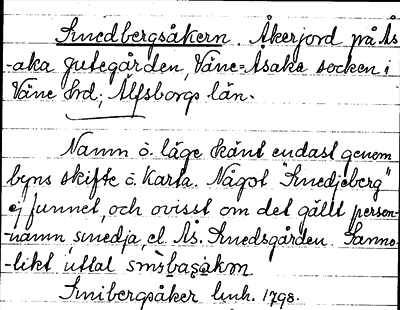 Smedbergsåkern. Åkerjord på Ås
-aka Jutegården, Väne=Åsaka socken i
Väne hrd; Älfsborgs län.
Namn o. läge känt endast genom
byns skifte o. karta. Något "Smedjeberg"
ej funnet, och ovisst om det gällt person-
-namn, smedja, el. Ås. Smedsgården. Sanno-
-likt uttal
Smibergsåker lmh. 1798.